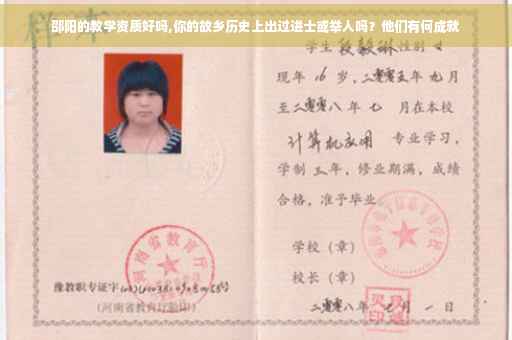 邵阳的教学资质好吗,你的故乡历史上出过进士或举人吗？他们有何成就
样本
学生段毅琳性别女
现年16岁，二零零五年九月
至二零零八年七月在本校
计算机应用 专业学习，
学制三年，修业期满，成绩
合格，准予毕业。
学校（章）
校长（章）
二零零八年 月一日
河南省教育厅
豫教职专证字
（河南省教育厅验印）